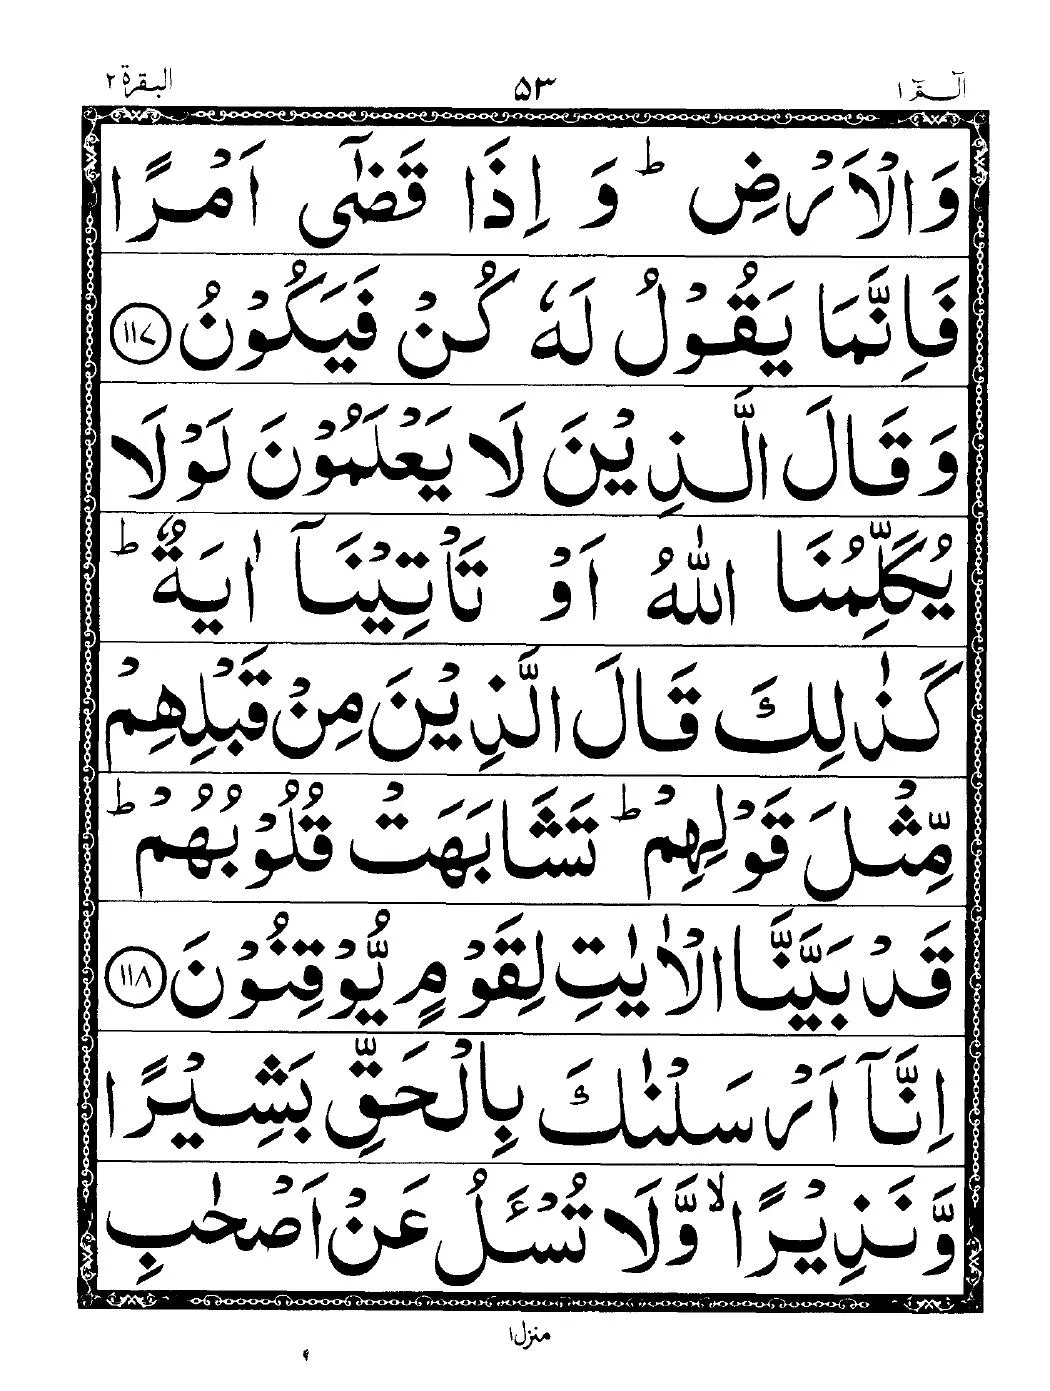 الٓـمّٓ ١ ٥٣ البقرة ٢
وَالْاَرْضِ ؕ وَ اِذَا قَضٰۤى اَمْرًا
فَاِنَّمَا يَقُوْلُ لَهٗ كُنْ فَيَكُوْنُ ۝١١٧
وَ قَالَ الَّذِيْنَ لَا يَعْلَمُوْنَ لَوْلَا
يُكَلِّمُنَا اللّٰهُ اَوْ تَاْتِيْنَاۤ اٰيَةٌ ؕ
كَذٰلِكَ قَالَ الَّذِيْنَ مِنْ قَبْلِهِمْ
مِّثْلَ قَوْلِهِمْ ؕ تَشَابَهَتْ قُلُوْبُهُمْ ؕ
قَدْ بَيَّنَّا الْاٰيٰتِ لِقَوْمٍ يُّوْقِنُوْنَ ۝١١٨
اِنَّاۤ اَرْسَلْنٰكَ بِالْحَقِّ بَشِيْرًا
وَّ نَذِيْرًا ۙ وَّلَا تُسْـَٔلُ عَنْ اَصْحٰبِ
منزل ١